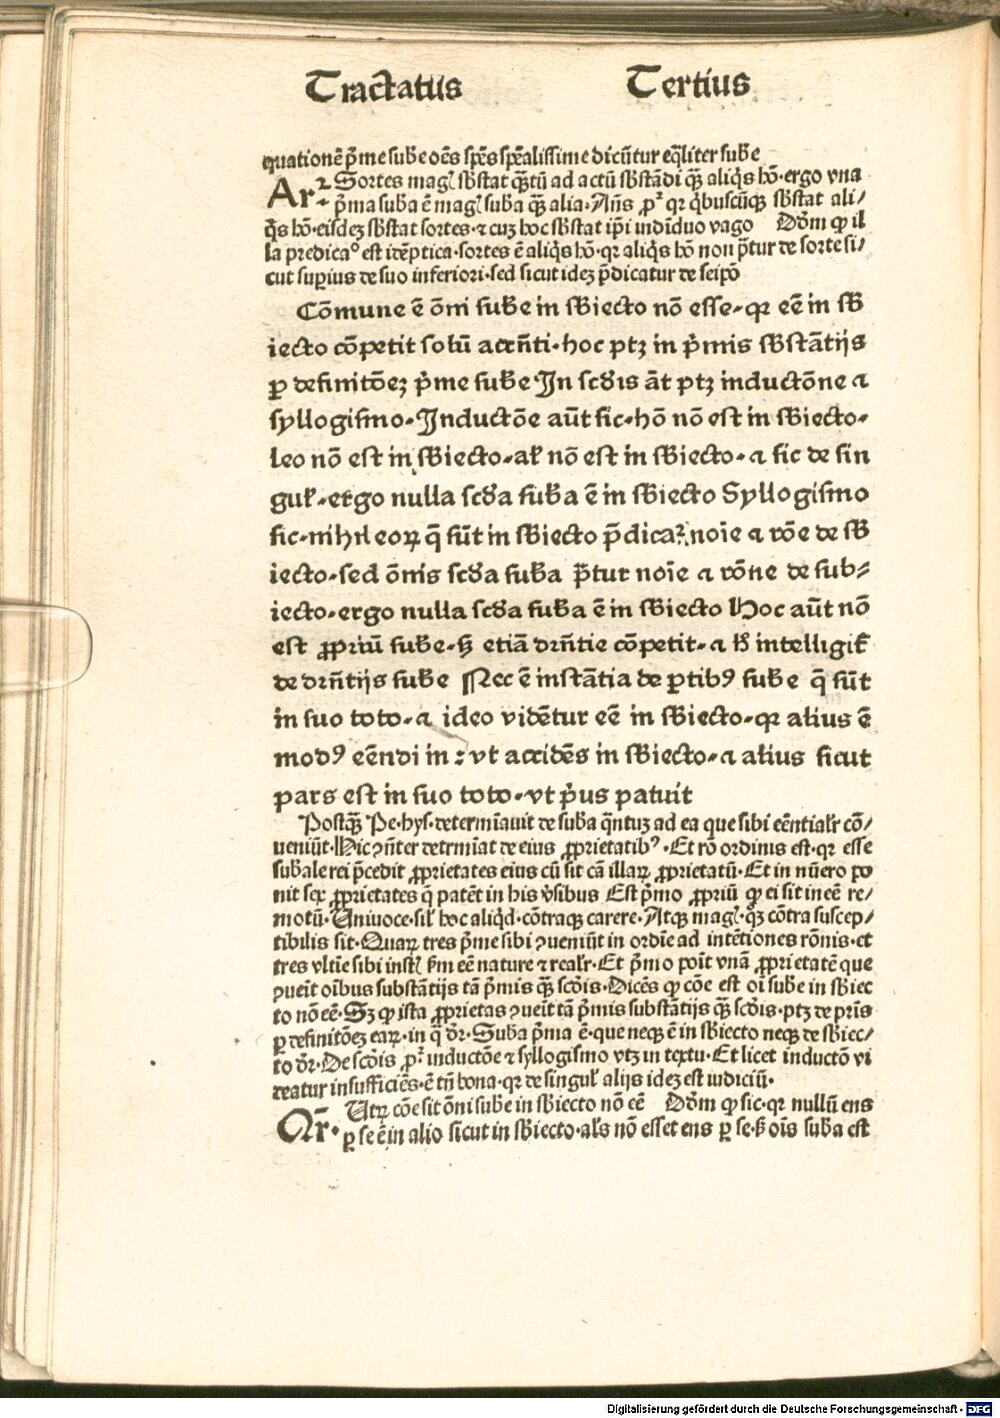 Tractatus Tertius
quationē p̄me sub̄e oēs spēs spēalissime dicūtur eq̄liter sub̄e
Ar Sortes magꝭ sb̄stat q̄ꝫtū ad actū sb̄stādi q̄ꝫ aliq̇s hō·ergo vna
p̄ma sub̄a ē magꝭ sub̄a q̄ꝫ alia·Añs pꝫ qꝛ q̇buscūqꝫ sb̄stat ali/
q̇s hō·eisdeꝫ sb̄stat sortes·⁊ cuꝫ hoc sb̄stat ip̄i indīduo vago Dōm ꝙ il
la predicaᵒ est idēptica·sortes ē aliq̇s hō·qꝛ aliq̇s hō non p̄tur de sorte si/
cut suꝑius de suo inferiori·sed sicut ideꝫ p̄dicatur de seip̄o
Cōmune ē ōni sub̄e in sb̄iecto nō esse·qꝛ eē in sb̄
iecto cōpetit solū accñti·hoc ptꝫ in p̄mis sb̄stātijs
ꝑ definitōeꝫ p̄me sub̄e In scd̄is āt ptꝫ inductōne ⁊
syllogismo·Inductōe aūt sic·hō nō est in sb̄iecto·
leo nō est in sb̄iecto·al̄ nō est in sb̄iecto·⁊ sic de sin
gul̄·ergo nulla scd̄a sub̄a ē in sb̄iecto Syllogismo
sic·nihil eoꝝ q̄ sūt in sb̄iecto p̄dicaꝛ̄ noīe ⁊ rōe de sb̄
iecto·sed ōnis scd̄a sub̄a p̄tur noīe ⁊ rōne de sub/
iecto·ergo nulla scd̄a sub̄a ē in sb̄iecto Hoc aūt nō
est ꝓpriū sub̄e·sꝫ etiā drñtie cōpetit·⁊ h̄ intelligit̄
de drñtijs sub̄e Nec ē instātia de ꝑtibꝰ sub̄e q̄ sūt
in suo toto·⁊ ideo vidētur eē in sb̄iecto·qꝛ alius ē
modꝰ eēndi in : vt accidēs in sb̄iecto·⁊ alius sicut
pars est in suo toto·vt p̄us patuit
Postq̄ꝫ Pe·hys·determīauit de sub̄a q̄ntuꝫ ad ea que sibi eēntialr̄ cō/
ueniūt·Hic ꝯñter detrmīat de eius ꝓprietatibꝰ·Et rō ordinis est·qꝛ esse
sub̄ale rei p̄cedit ꝓprietates eius cū sit cā illaꝝ ꝓprietatū·Et in nūero po
nit sex ꝓprietates q̄ patēt in his v̄sibus Est p̄mo ꝓpriū ꝙ ei sit in eē re/
motū·Uniuoce·sil̄ hoc aliq̇d·cōtraqꝫ carere·Atqꝫ magꝭ·q̇ꝫ cōtra suscep/
tibilis sit·Quaꝝ tres p̄me sibi ꝯueniūt in ordīe ad intētiones rōnis·et
tres vltīe sibi inst̄ẜ ẜm eē nature ⁊ realr̄·Et p̄mo poīt vnā ꝓprietatē que
ꝯueīt oībus substātijs tā p̄mis q̄ꝫ scd̄is·Dicēs ꝙ cōe est oī sub̄e in sb̄iec
to nō eē·Sꝫ ꝙ ista ꝓprietas ꝯueīt tā p̄mis substātijs q̄ꝫ scd̄is·ptꝫ de prīs
ꝑ definitōeꝫ eaꝝ·in q̄ dr̄·Sub̄a p̄ma ē·que neqꝫ ē in sb̄iecto neqꝫ de sb̄iec/
to dr̄·De scd̄is pꝫ inductōe ⁊ syllogismo vtꝫ in textu·Et licet inductō vi
deatur insufficiēs·ē tn̄ bona·qꝛ de singul̄ alijs ideꝫ est iudiciū·
Qr̄· Utꝝ cōe sit ōni sub̄e in sb̄iecto nō eē Dōm ꝙ sic·qꝛ nullū ens
ꝑ se ē in alio sicut in sb̄iecto·als̄ nō esset ens ꝑ se·ẜ oīs sub̄a est
Digitalisierung gefördert durch die Deutsche Forschungsgemeinschaft · DFG